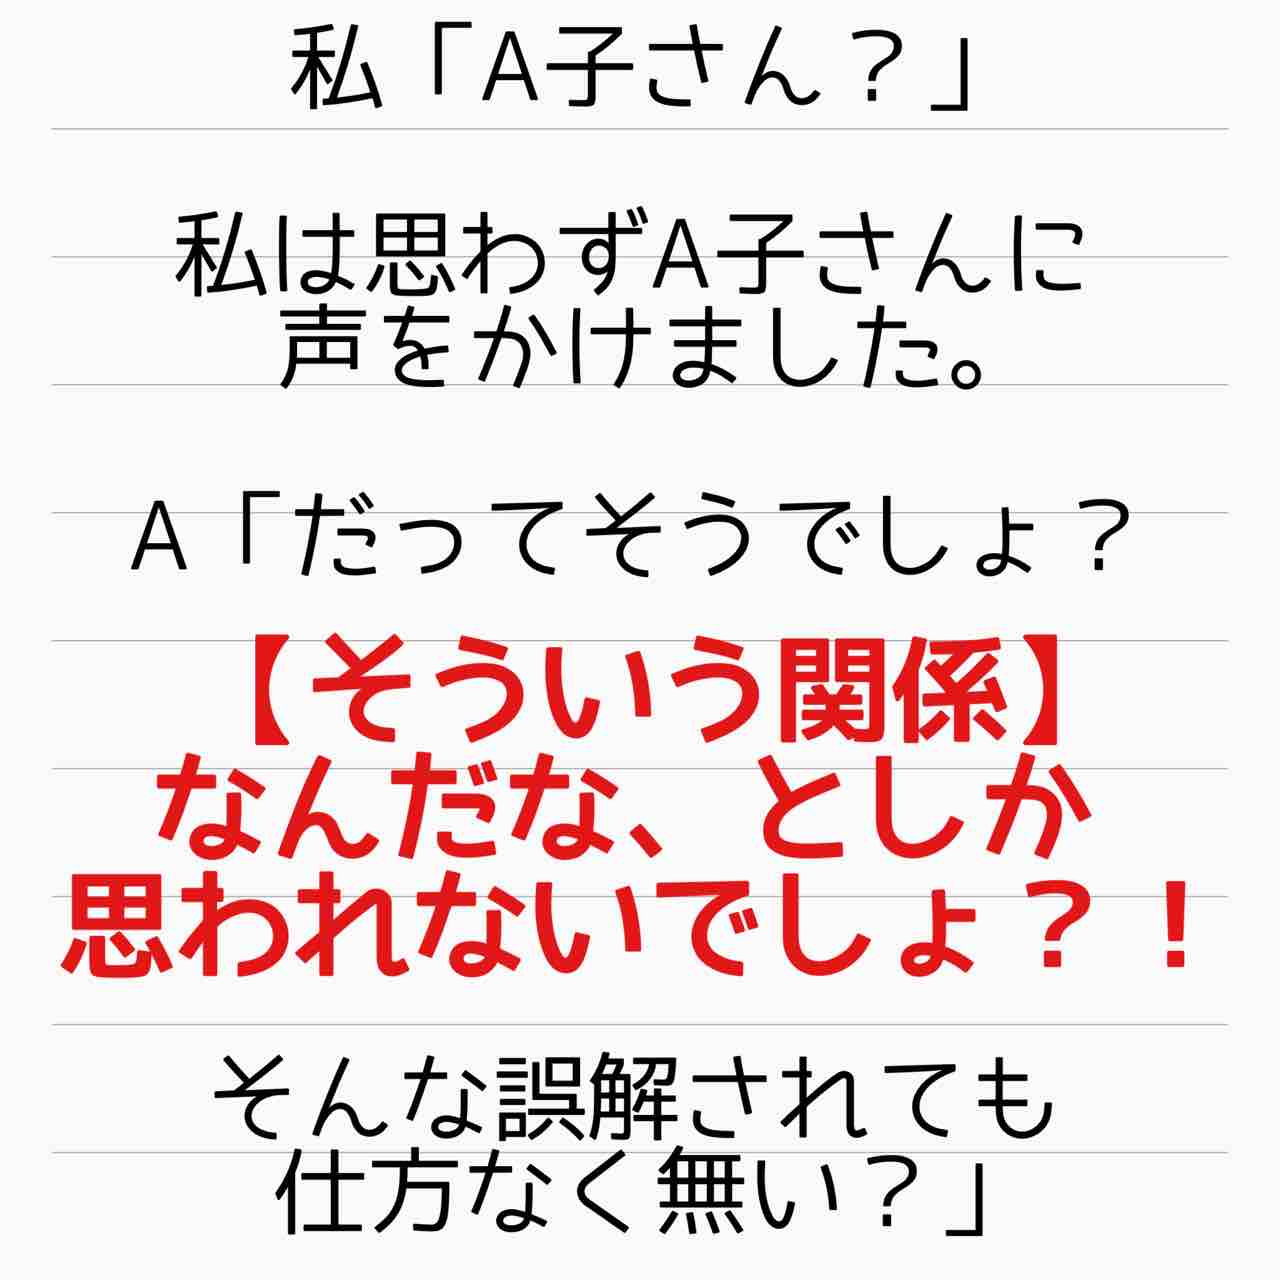 私「A子さん？」
私は思わずA子さんに
声をかけました。
A「だってそうでしょ？
【そういう関係】
なんだな、としか
思われないでしょ？！
そんな誤解されても
仕方なく無い？」